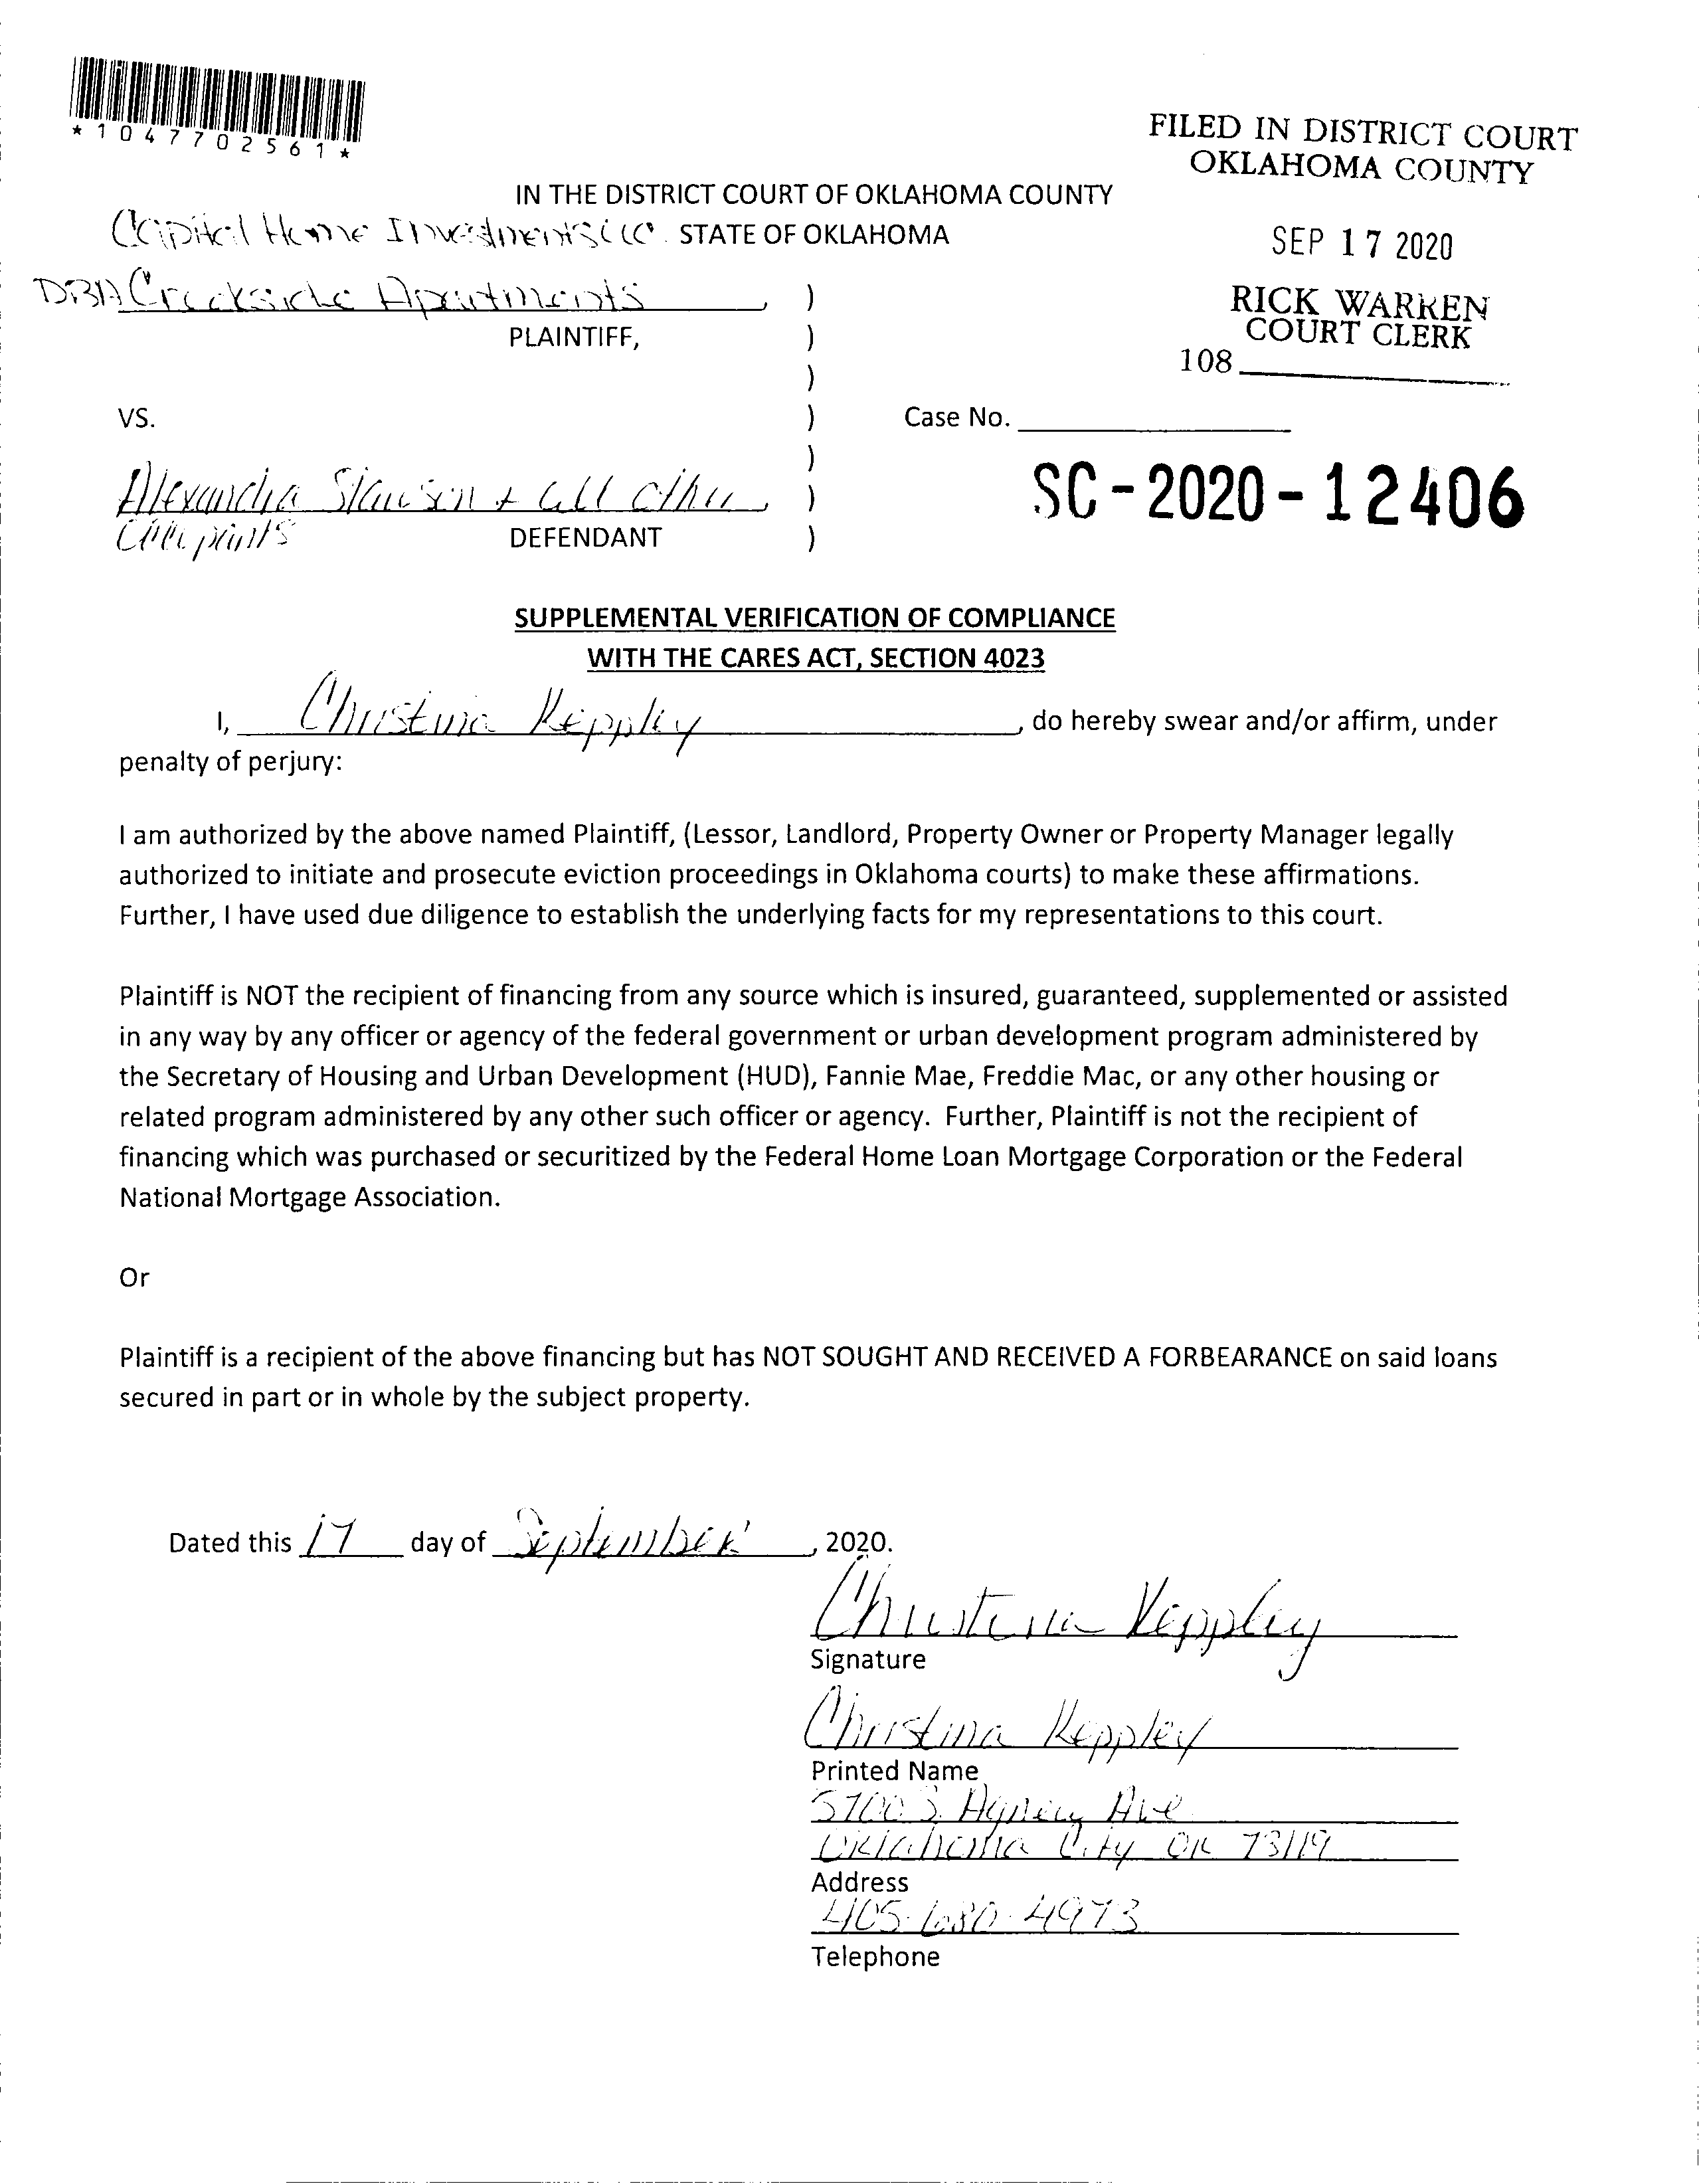 *1047702561*
FILED IN DISTRICT COURT
OKLAHOMA COUNTY
IN THE DISTRICT COURT OF OKLAHOMA COUNTY
Capital Home Investments LLC. STATE OF OKLAHOMA
SEP 17 2020
DBA Creekside Apartments, )
RICK WARREN
COURT CLERK
PLAINTIFF, )
108
)
VS. )
Case No.
)
Alexandria + all other, )
SC-2020-12406
DEFENDANT )
SUPPLEMENTAL VERIFICATION OF COMPLIANCE
WITH THE CARES ACT, SECTION 4023
I, Christina Keppley, do hereby swear and/or affirm, under
penalty of perjury:
I am authorized by the above named Plaintiff, (Lessor, Landlord, Property Owner or Property Manager legally
authorized to initiate and prosecute eviction proceedings in Oklahoma courts) to make these affirmations.
Further, I have used due diligence to establish the underlying facts for my representations to this court.
Plaintiff is NOT the recipient of financing from any source which is insured, guaranteed, supplemented or assisted
in any way by any officer or agency of the federal government or urban development program administered by
the Secretary of Housing and Urban Development (HUD), Fannie Mae, Freddie Mac, or any other housing or
related program administered by any other such officer or agency. Further, Plaintiff is not the recipient of
financing which was purchased or securitized by the Federal Home Loan Mortgage Corporation or the Federal
National Mortgage Association.
Or
Plaintiff is a recipient of the above financing but has NOT SOUGHT AND RECEIVED A FORBEARANCE on said loans
secured in part or in whole by the subject property.
Dated this 17 day of September, 2020.
Christina Keppley
Signature
Christina Keppley
Printed Name
5700 S. Agnew Ave
Oklahoma City OK 73119
Address
405-680-4973
Telephone